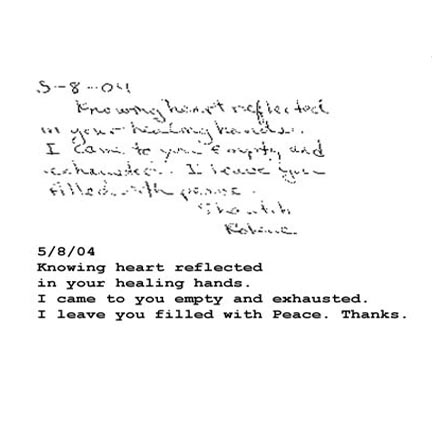 5-8-04
Knowing heart reflected
in your healing hands.
I came to you empty and
exhausted. I leave you
filled with peace.
5/8/04
Knowing heart reflected
in your healing hands.
I came to you empty and exhausted.
I leave you filled with Peace. Thanks.